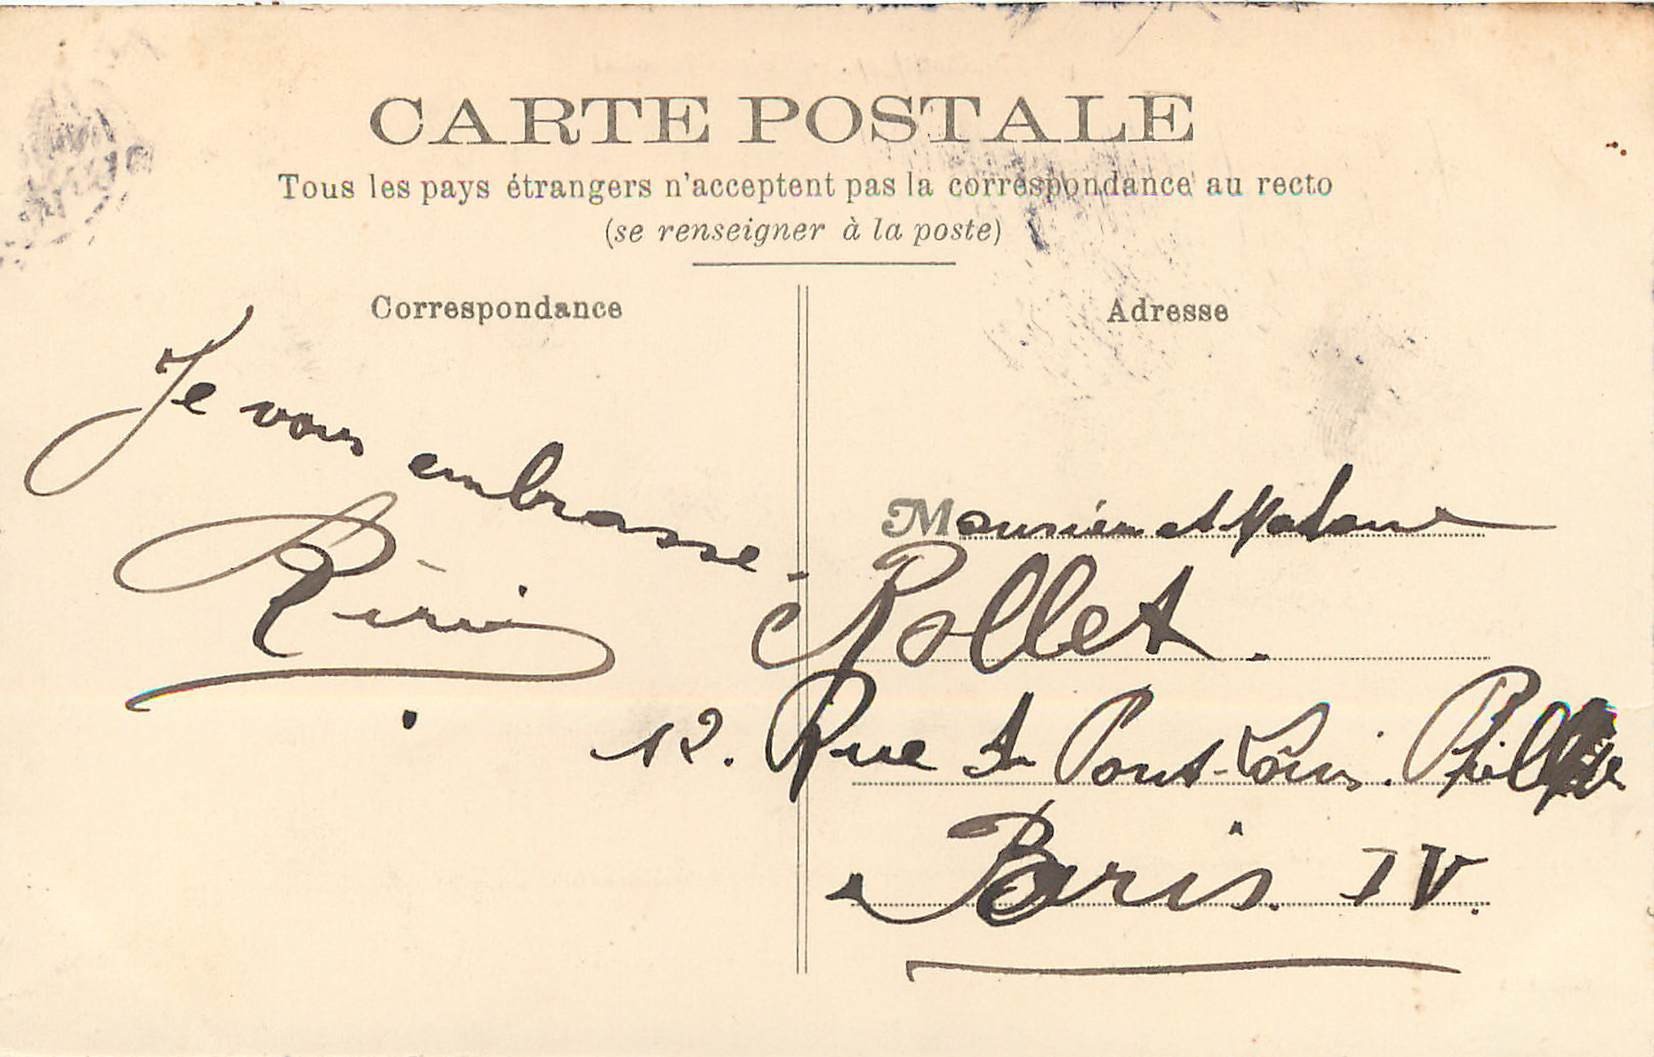 CARTE POSTALE
Tous les pays étrangers n'acceptent pas la correspondance au recto
(se renseigner à la poste)
Correspondance
Je vous embrasse -
Riri
Adresse
Monsieur et Madame
Rollet.
12. Rue du Pont-Louis. Philippe
Paris. IV.